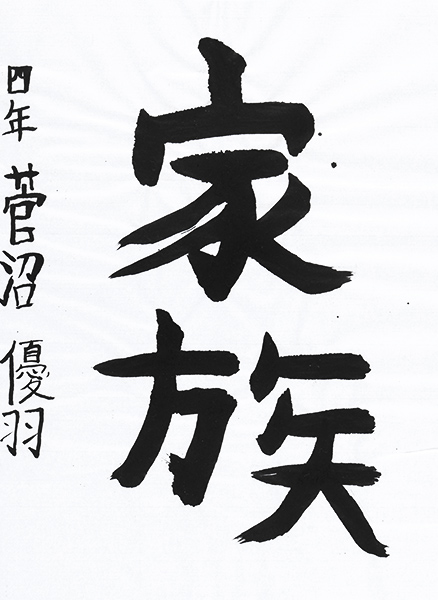 家族
四年 菅沼 優羽